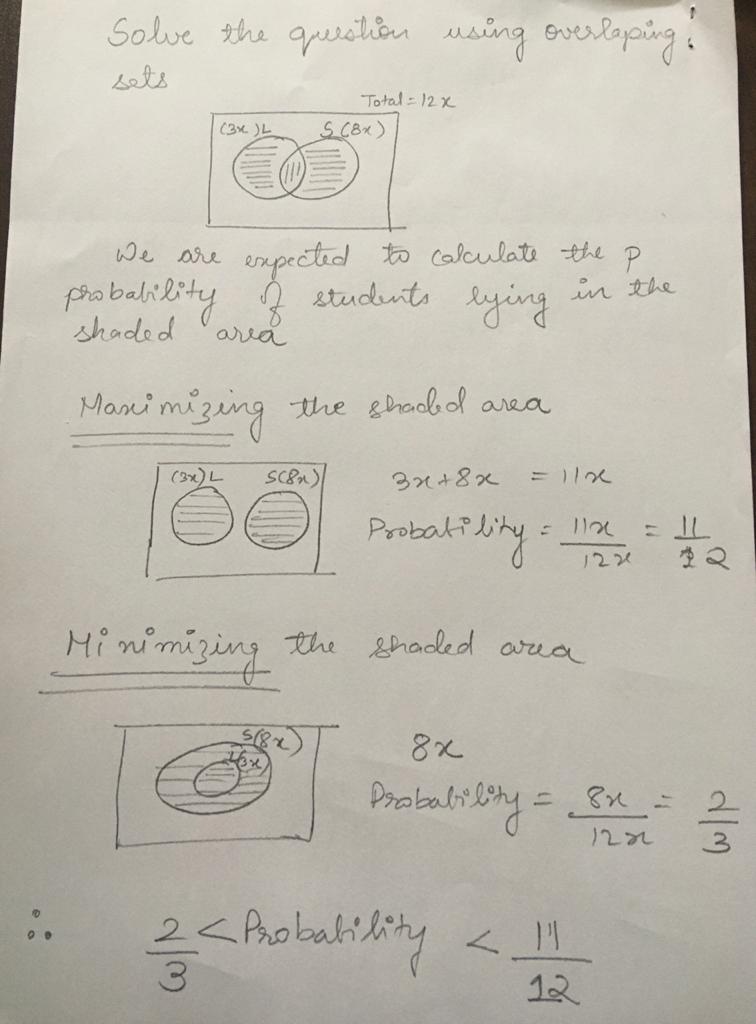 Solve the question using overlaping
sets
Total = 12x
(3x)L S(8x)
We are expected to calculate the p
probability of students lying in the
shaded area
Maximizing the shaded area
(3x)L S(8x)
3x+8x = 11x
Probability = 11x/12x = 11/12
Minimizing the shaded area
S(8x)
L(3x)
8x
Probability = 8x/12x = 2/3
∴ 2/3 < Probability < 11/12